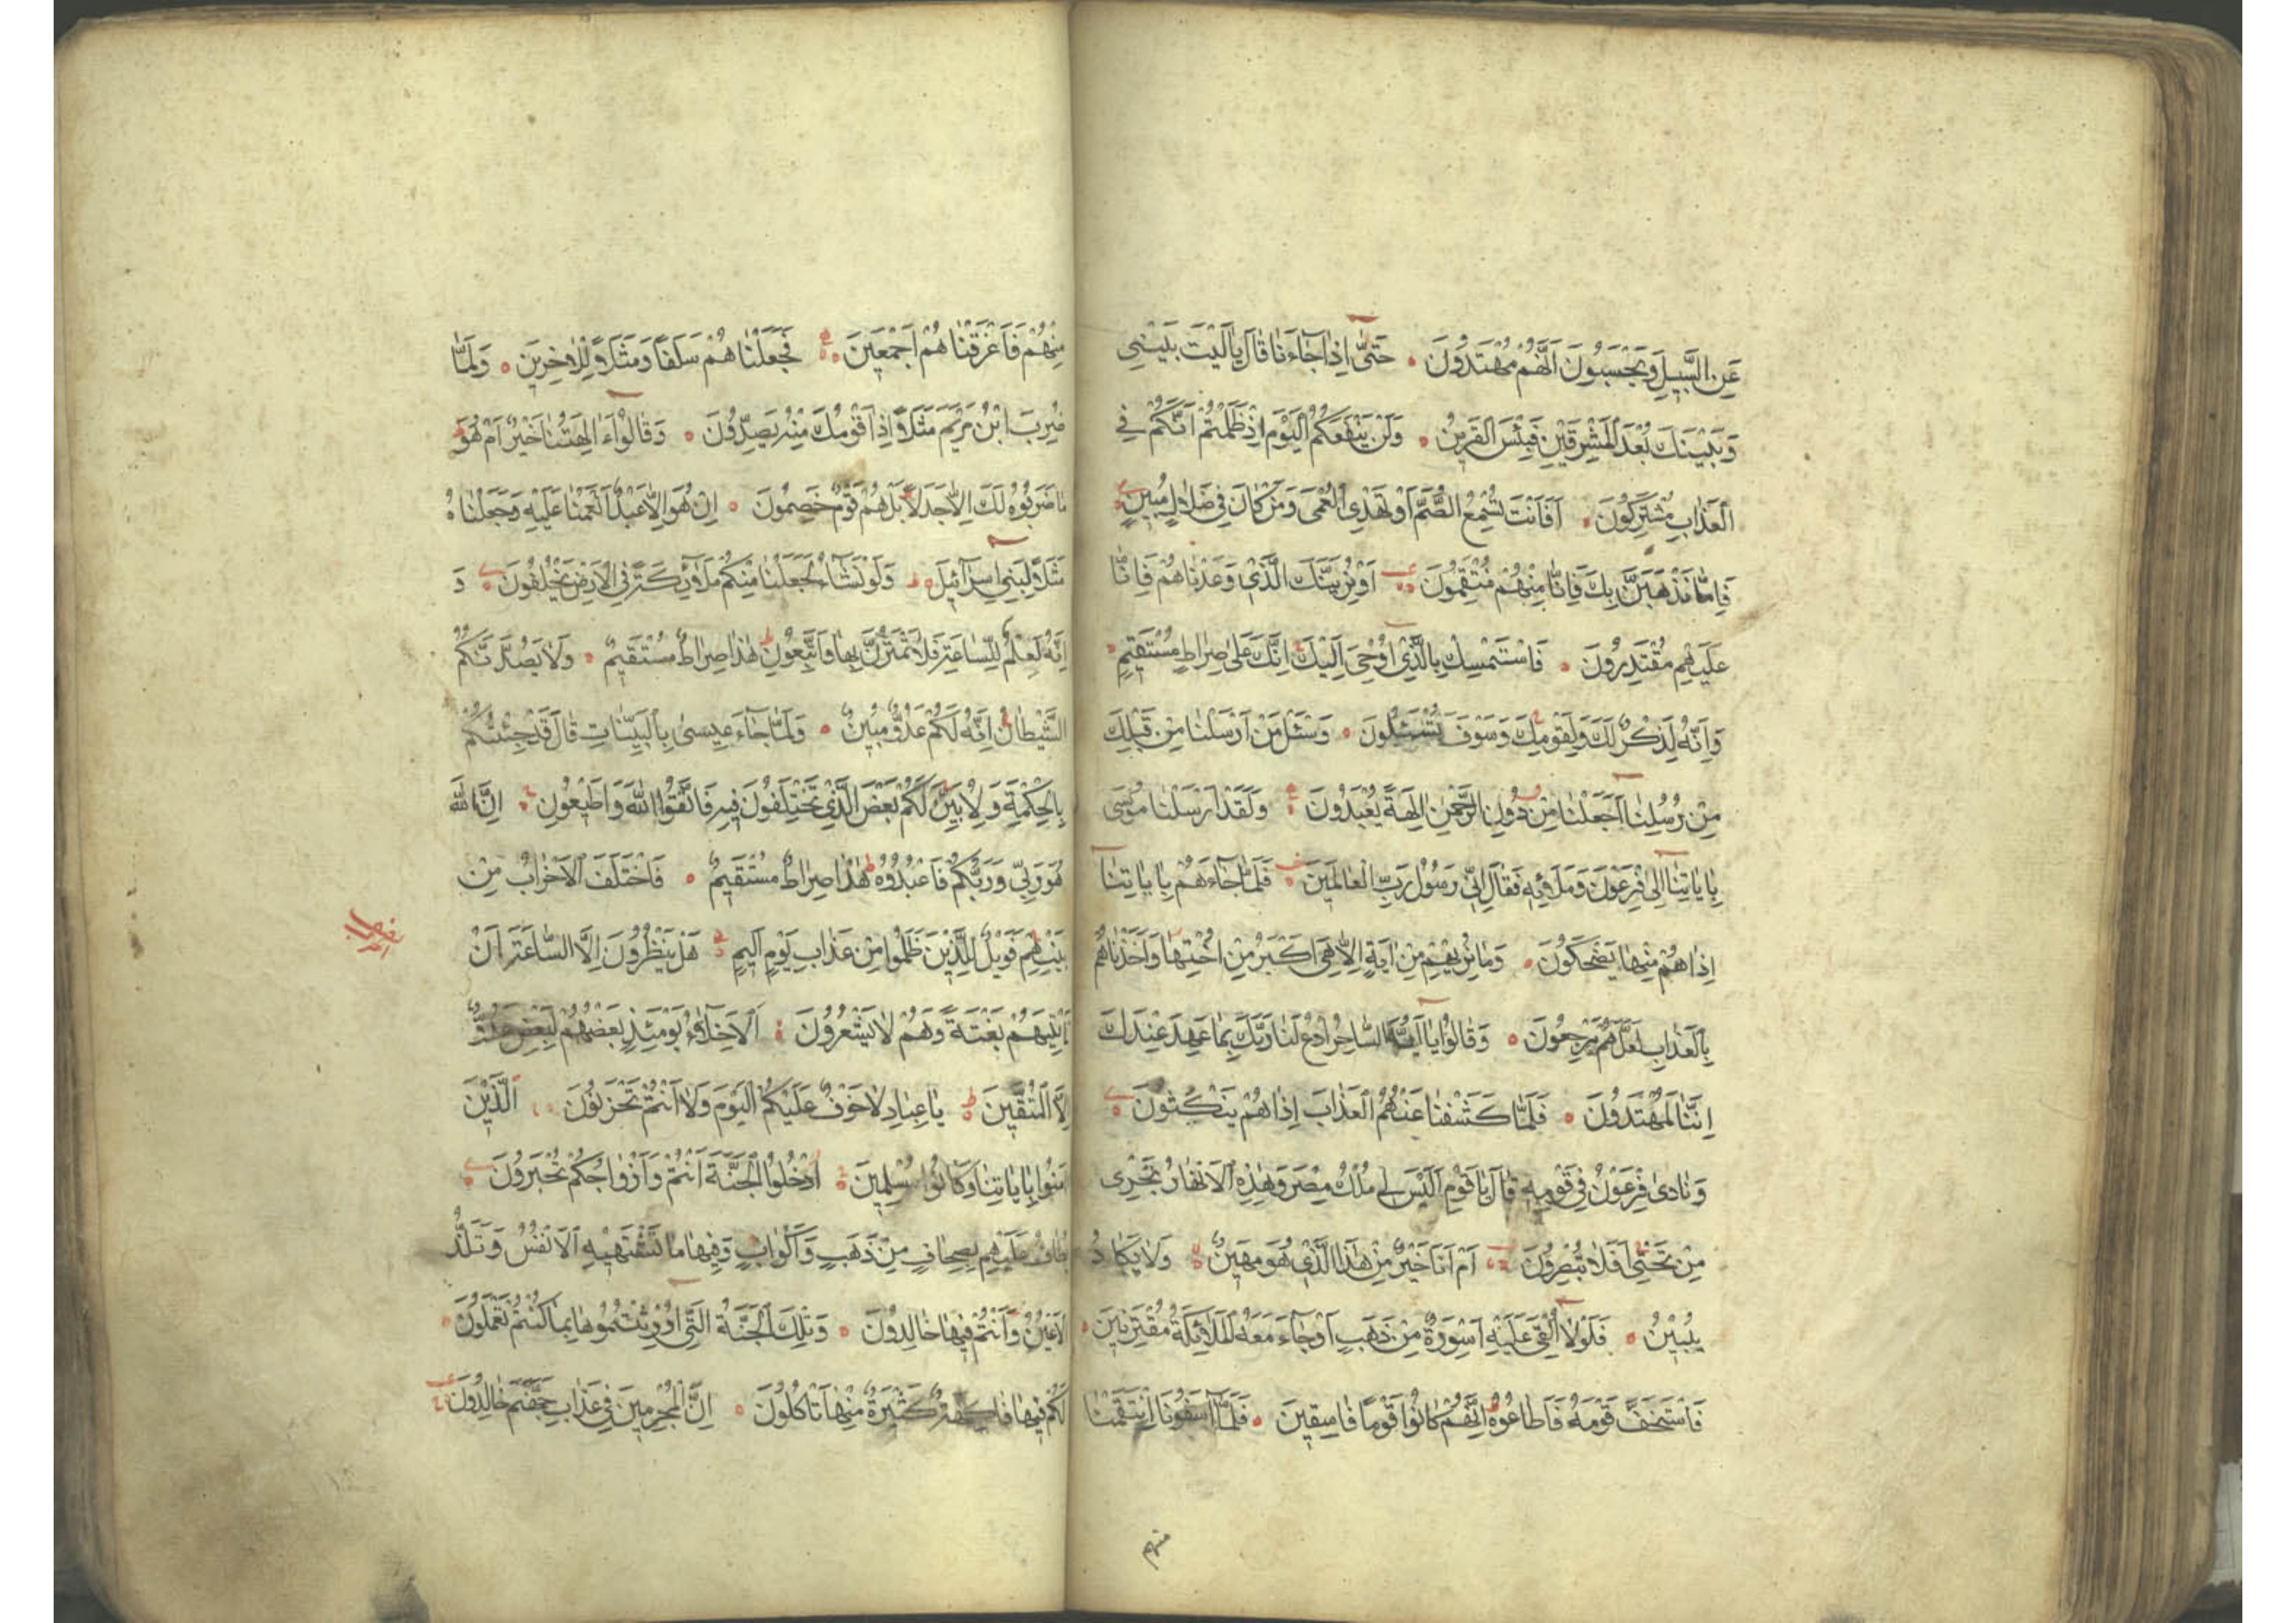 عَنِ السَّبِيلِ وَيَحْسَبُونَ اَنَّهُمْ مُهْتَدُونَ حَتّٰى اِذَا جَآءَنَا قَالَ يَا لَيْتَ بَيْنِي
وَبَيْنَكَ بُعْدَ الْمَشْرِقَيْنِ فَبِئْسَ الْقَرِينُ وَلَنْ يَنْفَعَكُمُ الْيَوْمَ اِذْ ظَلَمْتُمْ اَنَّكُمْ فِي
الْعَذَابِ مُشْتَرِكُونَ اَفَاَنْتَ تُسْمِعُ الصُّمَّ اَوْ تَهْدِي الْعُمْيَ وَمَنْ كَانَ فِي ضَلَالٍ مُبِينٍ
فَاِمَّا نَذْهَبَنَّ بِكَ فَاِنَّا مِنْهُمْ مُنْتَقِمُونَ اَوْ نُرِيَنَّكَ الَّذِي وَعَدْنَاهُمْ فَاِنَّا
عَلَيْهِمْ مُقْتَدِرُونَ فَاسْتَمْسِكْ بِالَّذِي اُوحِيَ اِلَيْكَ اِنَّكَ عَلٰى صِرَاطٍ مُسْتَقِيمٍ
وَاِنَّهُ لَذِكْرٌ لَكَ وَلِقَوْمِكَ وَسَوْفَ تُسْـَٔلُونَ وَسْـَٔلْ مَنْ اَرْسَلْنَا مِنْ قَبْلِكَ
مِنْ رُسُلِنَا اَجَعَلْنَا مِنْ دُونِ الرَّحْمٰنِ اٰلِهَةً يُعْبَدُونَ وَلَقَدْ اَرْسَلْنَا مُوسٰى
بِاٰيَاتِنَا اِلٰى فِرْعَوْنَ وَمَلَائِهِ فَقَالَ اِنِّي رَسُولُ رَبِّ الْعَالَمِينَ فَلَمَّا جَاءَهُمْ بِاٰيَاتِنَا
اِذَا هُمْ مِنْهَا يَضْحَكُونَ وَمَا نُرِيهِمْ مِنْ اٰيَةٍ اِلَّا هِيَ اَكْبَرُ مِنْ اُخْتِهَا وَاَخَذْنَاهُمْ
بِالْعَذَابِ لَعَلَّهُمْ يَرْجِعُونَ وَقَالُوا يَا اَيُّهَ السَّاحِرُ ادْعُ لَنَا رَبَّكَ بِمَا عَهِدَ عِنْدَكَ
اِنَّنَا لَمُهْتَدُونَ فَلَمَّا كَشَفْنَا عَنْهُمُ الْعَذَابَ اِذَا هُمْ يَنْكُثُونَ
وَنَادٰى فِرْعَوْنُ فِي قَوْمِهِ قَالَ يَا قَوْمِ اَلَيْسَ لِي مُلْكُ مِصْرَ وَهٰذِهِ الْاَنْهَارُ تَجْرِي
مِنْ تَحْتِي اَفَلَا تُبْصِرُونَ اَمْ اَنَا خَيْرٌ مِنْ هٰذَا الَّذِي هُوَ مَهِينٌ وَلَا يَكَادُ
يُبِينُ فَلَوْلَا اُلْقِيَ عَلَيْهِ اَسْوِرَةٌ مِنْ ذَهَبٍ اَوْ جَآءَ مَعَهُ الْمَلٰٓائِكَةُ مُقْتَرِنِينَ
فَاسْتَخَفَّ قَوْمَهُ فَاَطَاعُوهُ اِنَّهُمْ كَانُوا قَوْمًا فَاسِقِينَ فَلَمَّا اٰسَفُونَا انْتَقَمْنَا
منهم
مِنْهُمْ فَاَغْرَقْنَاهُمْ اَجْمَعِينَ فَجَعَلْنَاهُمْ سَلَفًا وَمَثَلًا لِلْاٰخِرِينَ وَلَمَّا
ضُرِبَ ابْنُ مَرْيَمَ مَثَلًا اِذَا قَوْمُكَ مِنْهُ يَصِدُّونَ وَقَالُوا ءَاٰلِهَتُنَا خَيْرٌ اَمْ هُوَ
مَا ضَرَبُوهُ لَكَ اِلَّا جَدَلًا بَلْ هُمْ قَوْمٌ خَصِمُونَ اِنْ هُوَ اِلَّا عَبْدٌ اَنْعَمْنَا عَلَيْهِ وَجَعَلْنَاهُ
مَثَلًا لِبَنِي اِسْرَآئِيلَ وَلَوْ نَشَآءُ لَجَعَلْنَا مِنْكُمْ مَلٰٓئِكَةً فِي الْاَرْضِ يَخْلُفُونَ وَ
اِنَّهُ لَعِلْمٌ لِلسَّاعَةِ فَلَا تَمْتَرُنَّ بِهَا وَاتَّبِعُونِ هٰذَا صِرَاطٌ مُسْتَقِيمٌ وَلَا يَصُدَّنَّكُمُ
الشَّيْطَانُ اِنَّهُ لَكُمْ عَدُوٌّ مُبِينٌ وَلَمَّا جَآءَ عِيسٰى بِالْبَيِّنَاتِ قَالَ قَدْ جِئْتُكُمْ
بِالْحِكْمَةِ وَلِاُبَيِّنَ لَكُمْ بَعْضَ الَّذِي تَخْتَلِفُونَ فِيهِ فَاتَّقُوا اللّٰهَ وَاَطِيعُونِ اِنَّ اللّٰهَ
هُوَ رَبِّي وَرَبُّكُمْ فَاعْبُدُوهُ هٰذَا صِرَاطٌ مُسْتَقِيمٌ فَاخْتَلَفَ الْاَحْزَابُ مِنْ
بَيْنِهِمْ فَوَيْلٌ لِلَّذِينَ ظَلَمُوا مِنْ عَذَابِ يَوْمٍ اَلِيمٍ هَلْ يَنْظُرُونَ اِلَّا السَّاعَةَ اَنْ
تَاْتِيَهُمْ بَغْتَةً وَهُمْ لَا يَشْعُرُونَ اَلْاَخِلَّآءُ يَوْمَئِذٍ بَعْضُهُمْ لِبَعْضٍ عَدُوٌّ
اِلَّا الْمُتَّقِينَ يَا عِبَادِ لَا خَوْفٌ عَلَيْكُمُ الْيَوْمَ وَلَا اَنْتُمْ تَحْزَنُونَ اَلَّذِينَ
اٰمَنُوا بِاٰيَاتِنَا وَكَانُوا مُسْلِمِينَ اُدْخُلُوا الْجَنَّةَ اَنْتُمْ وَاَزْوَاجُكُمْ تُحْبَرُونَ
يُطَافُ عَلَيْهِمْ بِصِحَافٍ مِنْ ذَهَبٍ وَاَكْوَابٍ وَفِيهَا مَا تَشْتَهِيهِ الْاَنْفُسُ وَتَلَذُّ
الْاَعْيُنُ وَاَنْتُمْ فِيهَا خَالِدُونَ وَتِلْكَ الْجَنَّةُ الَّتِي اُورِثْتُمُوهَا بِمَا كُنْتُمْ تَعْمَلُونَ
لَكُمْ فِيهَا فَاكِهَةٌ كَثِيرَةٌ مِنْهَا تَاْكُلُونَ اِنَّ الْمُجْرِمِينَ فِي عَذَابِ جَهَنَّمَ خَالِدُونَ